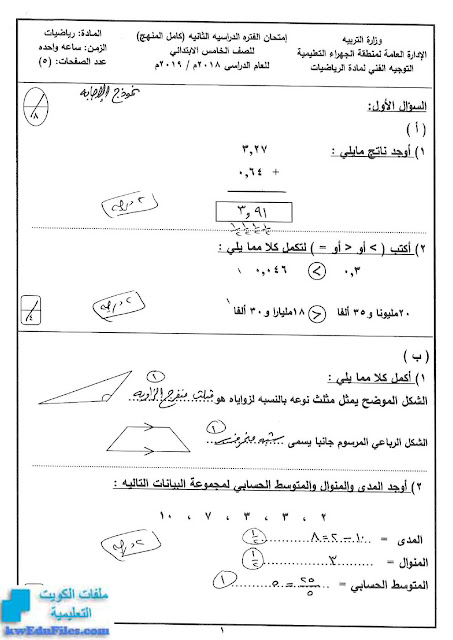 وزارة التربيه
الإدارة العامة لمنطقة الجهراء التعليمية
التوجيه الفني لمادة الرياضيات
إمتحان الفتره الدراسيه الثانيه (كامل المنهج)
للصف الخامس الابتدائي
للعام الدراسى ٢٠١٨م / ٢٠١٩م
المادة: رياضيات
الزمن: ساعه واحده
عدد الصفحات: (٥)
نموذج الإجابه
السؤال الأول:
٨
( أ )
١) أوجد ناتج مايلي :
٣,٢٧
٠,٦٤ +
٣,٩١
٢ درجه
٢) أكتب ( > أو < أو = ) لتكمل كلا مما يلي :
٠,٣ > ٠,٠٤٦
٢٠مليونا و ٣٥ ألفا < ١٨مليارا و ٣٠ ألفا
٢ درجه
٤
( ب )
١) أكمل كلا مما يلي :
الشكل الموضح يمثل مثلث نوعه بالنسبه لزواياه هو مثلث منفرج الزاويه ١
الشكل الرباعي المرسوم جانبا يسمى شبه منحرف ١
٢) أوجد المدى والمنوال والمتوسط الحسابي لمجموعة البيانات التاليه :
٢ , ٣ , ٣ , ٧ , ١٠
المدى = ١٠ - ٢ = ٨ ١/٢
المنوال = ٣ ١/٢
المتوسط الحسابي = ٢٥/٥ = ٥ ١
٢ درجه
١
ملفات الكويت
التعليمية
kwEduFiles.com